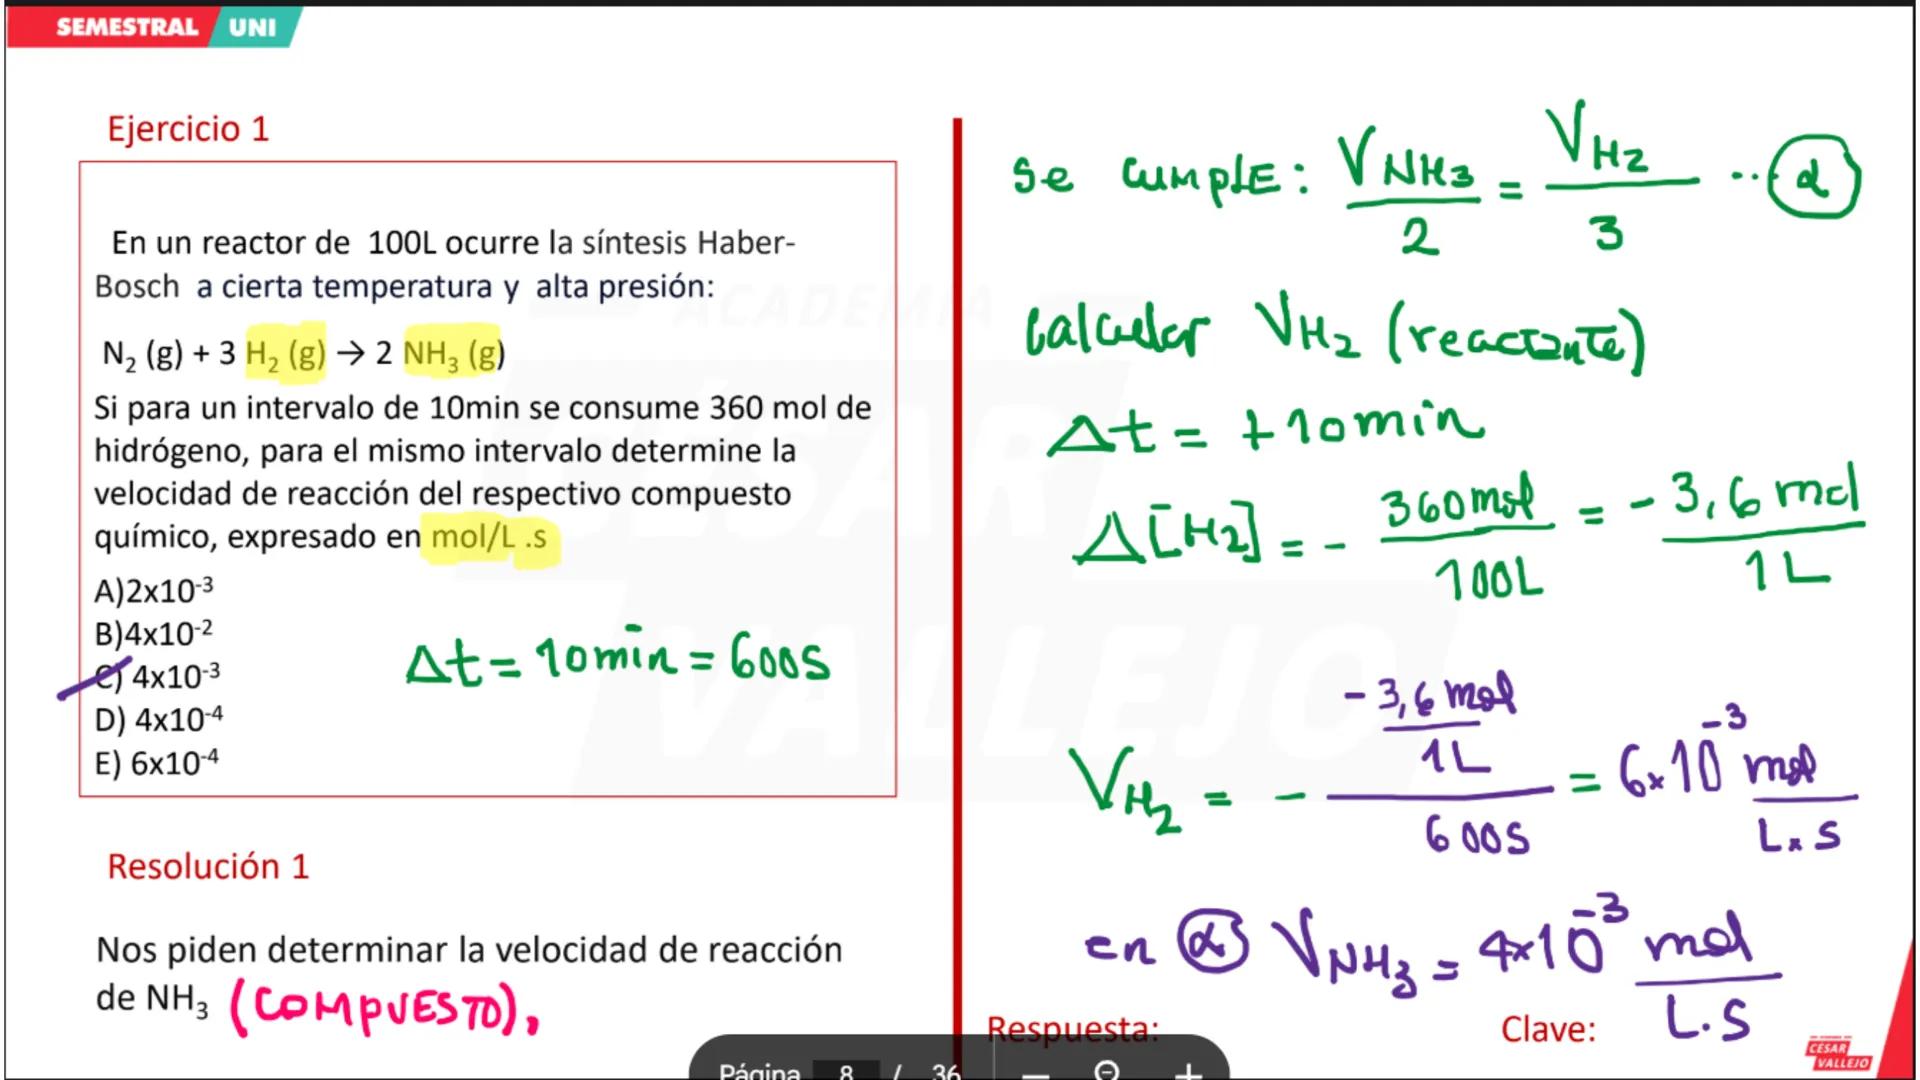 SEMESTRAL UNI
Ejercicio 1
En un reactor de 100L ocurre la síntesis Haber-
Bosch a cierta temperatura y alta presión:
N₂ (g) + 3 H₂ (g) → 2 NH₃ (g)
Si para un intervalo de 10min se consume 360 mol de
hidrógeno, para el mismo intervalo determine la
velocidad de reacción del respectivo compuesto
químico, expresado en mol/L .s
A)2x10⁻³
B)4x10⁻²
C) 4x10⁻³
D) 4x10⁻⁴
E) 6x10⁻⁴
Δt = 10min = 600s
Resolución 1
Nos piden determinar la velocidad de reacción
de NH₃ (COMPUESTO),
Se CUMPLE: V NH₃ / 2 = V H₂ / 3 ... α
Calcular V H₂ (reactante)
Δt = +10min
Δ[H₂] = - 360mol / 100L = - 3,6 mol / 1L
V H₂ = - (- 3,6 mol / 1L) / 600s = 6x10⁻³ mol / L x s
en α V NH₃ = 4x10⁻³ mol / L.s
Respuesta:
Clave:
ACADEMIA
CÉSAR
VALLEJO
CESAR
VALLEJO
Página 8 / 36 — +